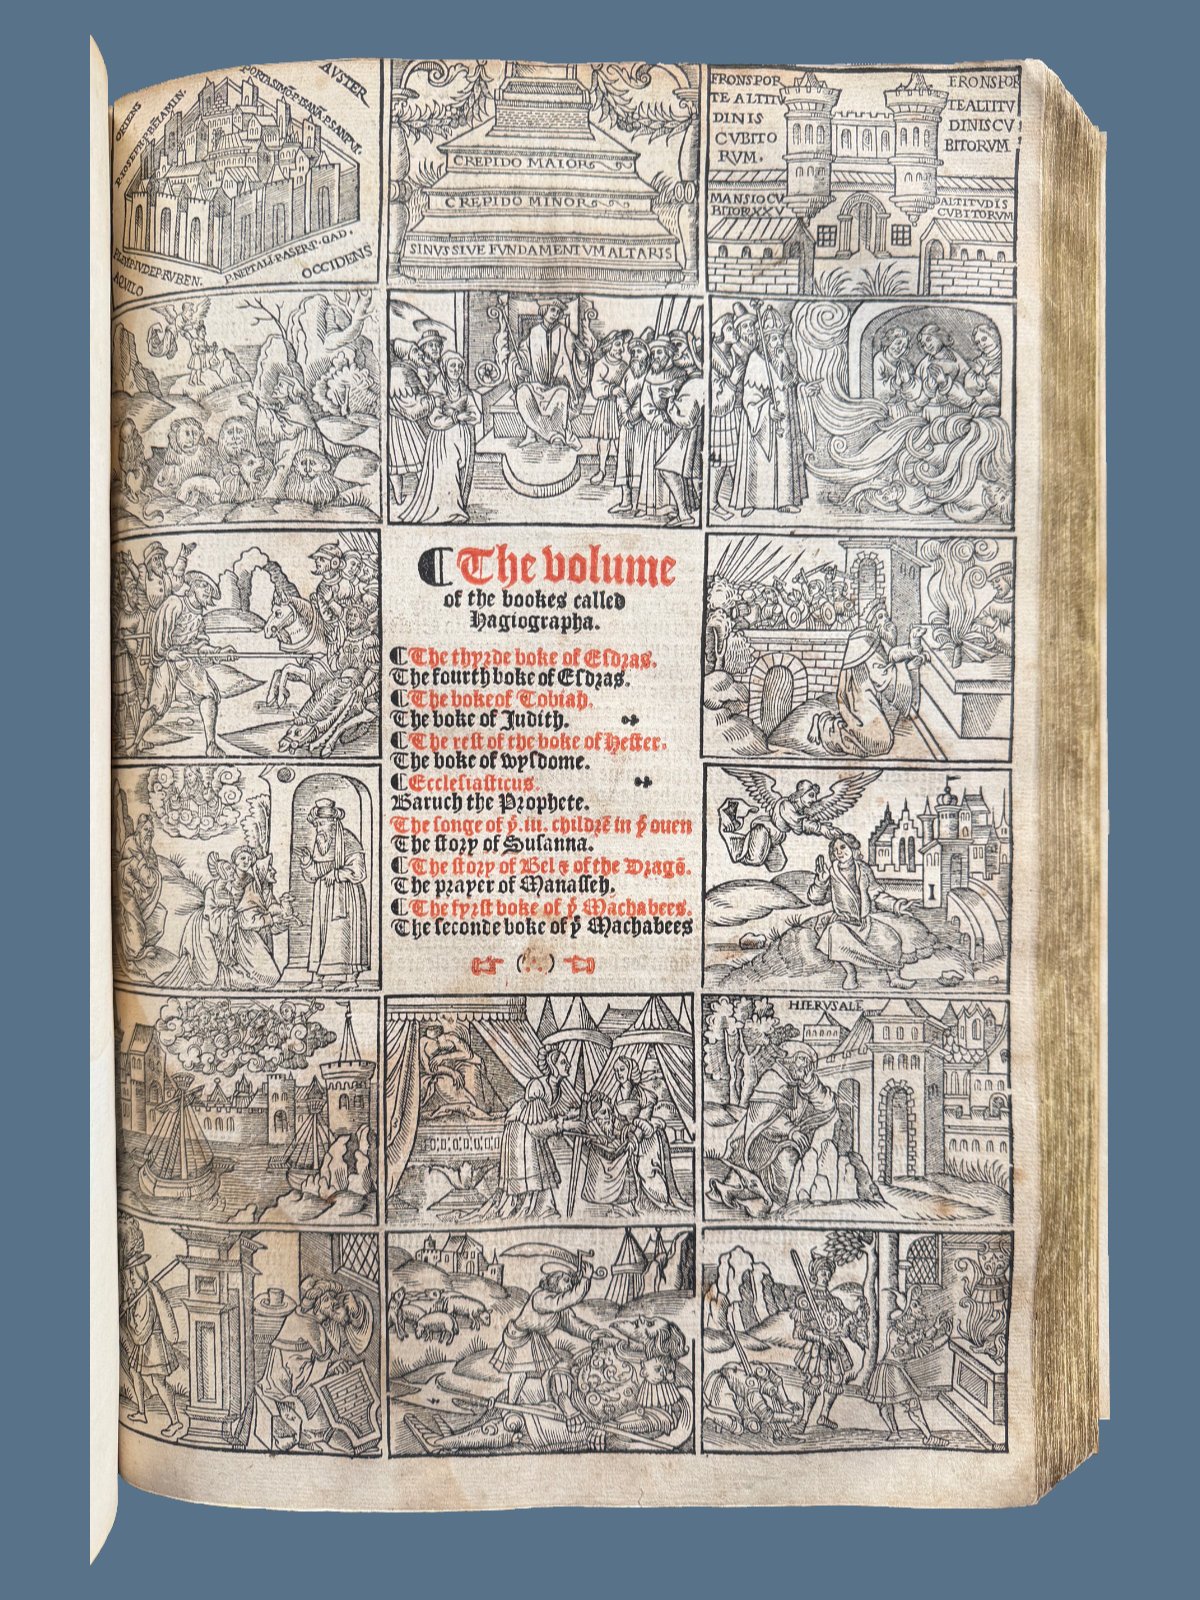 ORIENS
PORTA SIMEŌ.P.ISACAR.P.SABVL.
AVSTER
P.IOSEPH.P.BEIAMIN.
P.LEVI.P.IVDE.P.RVBEN.
P.NEPTALI.P.ASER.P.GAD.
OCCIDENS
AQVILO
CREPIDO MAIOR
CREPIDO MINOR
SINVS SIVE FVNDAMENTVM ALTARIS
FRONS POR
TE ALTITV
DINIS
CVBITO
RVM.
FRONS POR
TE ALTITV
DINIS CV
BITORVM
MANSIO CV
BITOR XXV
ALTITVDIS
CVBITORVM
¶ The volume
of the bookes called
Hagiographa.
¶ The thyrde boke of Esdras.
The fourth boke of Esdras.
¶ The boke of Tobiah.
The boke of Judith.
¶ The rest of the boke of Hester.
The boke of wysdome.
¶ Ecclesiasticus.
Baruch the Prophete.
The songe of yͤ .iii. childrē in yͤ ouen
The story of Susanna.
¶ The story of Bel & of the Dragō.
The prayer of Manasseh.
¶ The fyrst boke of yͤ Machabees.
The seconde boke of yͤ Machabees
HIERVSALE